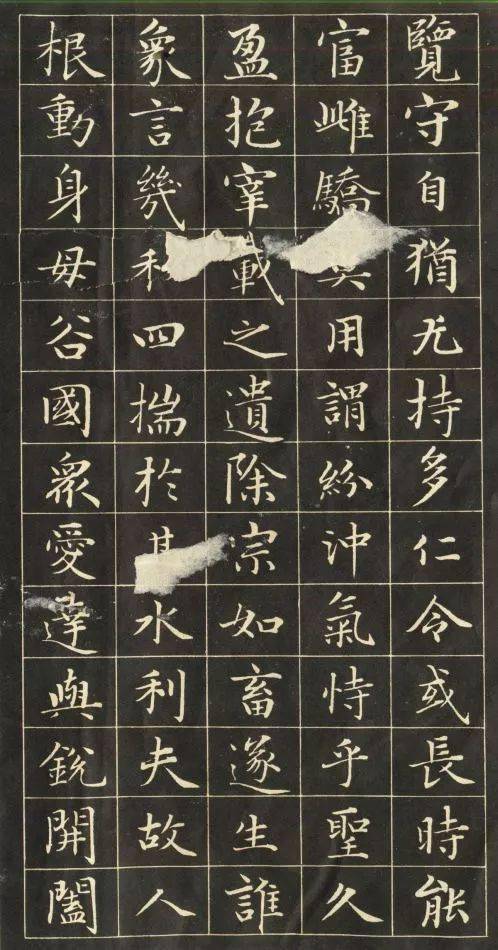 覽守自猶无持多仁令或長時能
富雌驕用謂紛沖氣恃乎聖久
盈抱宰載之遺除宗如畜遂生誰
象言幾四揣於水利夫故人
根動身毋谷國眾愛達與銳開闔